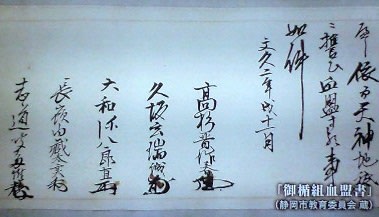 天神地祇
誓ひ血盟
如件
文久二年戌十一月
高杉晋作
久坂玄瑞誠
大和弥八郎
長嶺内蔵太
志道聞多
「御楯組血盟書」
(静岡市教育委員会 蔵)